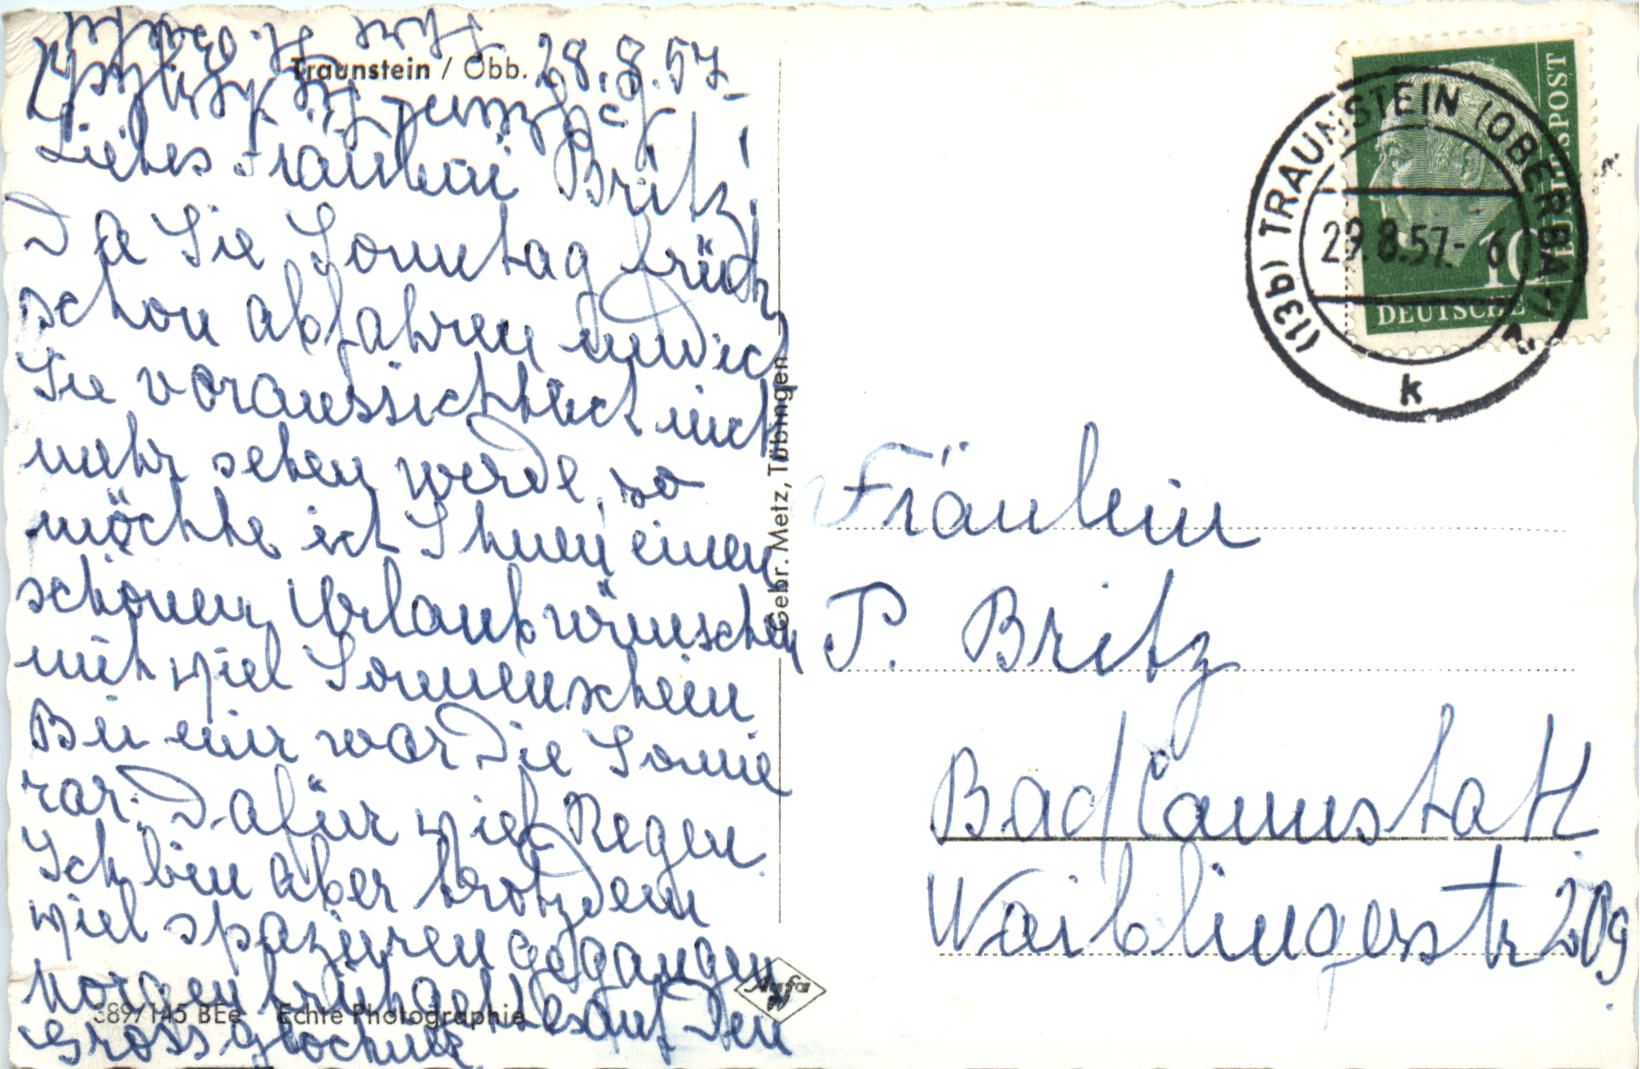 Traunstein / Obb. 28.8.57
Liebes Fräulein Britz!
Da Sie Sonntag früh
schon abfahren und ich
Sie voraussichtlich nicht
mehr sehen werde, so
möchte ich Ihnen einen
schönen Urlaub wünschen
mit viel Sonnenschein
Bei mir war die Sonne
rar. Dafür viel Regen.
Ich bin aber trotzdem
viel spazieren gegangen
Morgen früh geht es auf den
Grossglockner
389/145 BEe Echte Photographie
Agfa
Gebr. Metz, Tübingen
(13b) TRAUNSTEIN (OBERBAY)
29.8.57.- 6
k
10
DEUTSCHE BUNDESPOST
Fräulein
P. Britz
Bad Cannstatt
Waiblingerstr 209